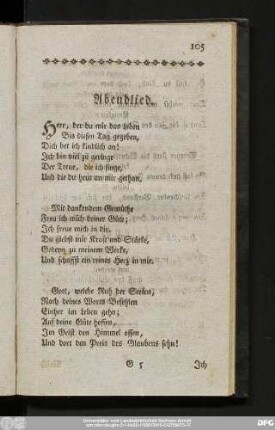 105
Abendlied.
Herr, der du mir das Leben
Bis diesen Tag gegeben,
Dich bet ich kindlich an!
Ich bin viel zu geringe
Der Treue, die ich singe,
Und die du heut an mir gethan.
Mit dankendem Gemüthe
Freu ich mich deiner Güte;
Ich freue mich in dir.
Du giebst mir Kraft und Stärke,
Gedeyn zu meinem Werke,
Und schaffst ein reines Herz in mir.
Gott, welche Ruh der Seelen,
Nach deines Worts Befehlen
Einher im Leben gehn;
Auf deine Güte hoffen,
Im Geist den Himmel offen,
Und dort den Preis des Glaubens sehn!
G 5 Ich